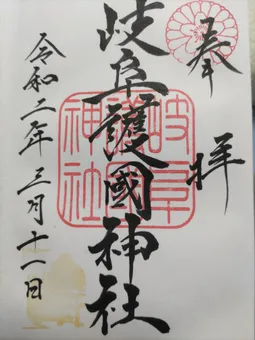 奉拝
岐阜護國神社
令和二年三月十一日
岐阜
護國
神社